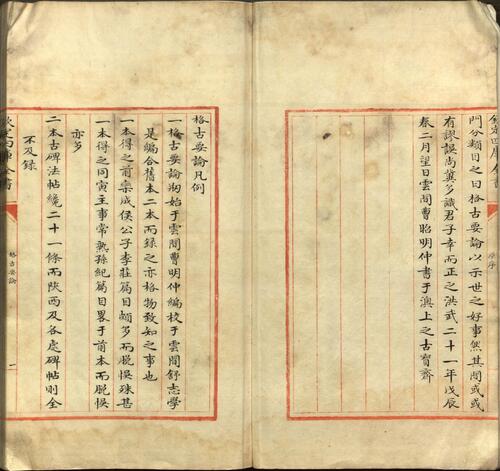 門分類目之曰格古要論以示世之好事然其間或
有謬誤尚冀多識君子幸而正之洪武二十一年戊辰
春二月望日雲間曹昭明仲書于澳上之古寶齋
格古要論凡例
一格古要論始于雲間曹明仲編校于雲間舒志學
是編合舊本二本而録之亦格物致知之事也
一本得之前欒成侯公子李莊篇目頗多而脱悞殊甚
一本得之同寅主事常熟孫紀篇目畧于前本而脱悞
亦多
二本古碑法帖纔二十一條而陝西及各處碑帖則全
不及録
格古要論
一